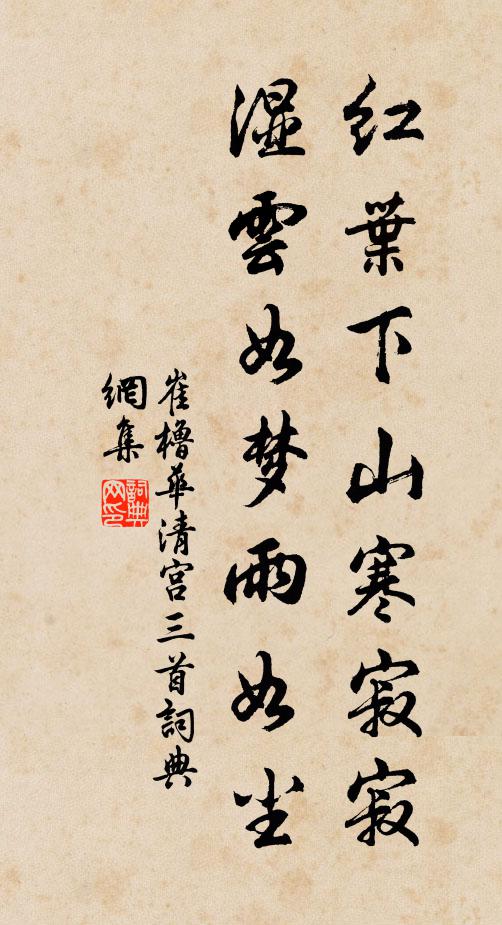 红葉下山寒寂寂
湿雲如梦雨如尘
崔櫓華清宮三首詞典
網集
詞典
网印